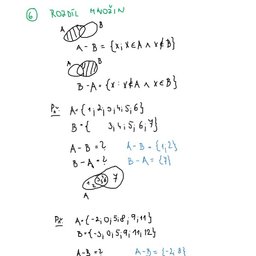 6 ROZDÍL MNOŽIN
A B
A - B = {x; x∈A ∧ x∉B}
A B
B - A = {x: x∉A ∧ x∈B}
Př. A={1,2,3,4,5,6}
B={ 3,4,5,6,7}
A - B = ? A - B = {1,2}
B - A = ? B - A = {7}
7
A
Př. A={-2,0,5,8,9,11}
B={-3,0,5,9,11,12}
A-B=? A-B={-2,8}